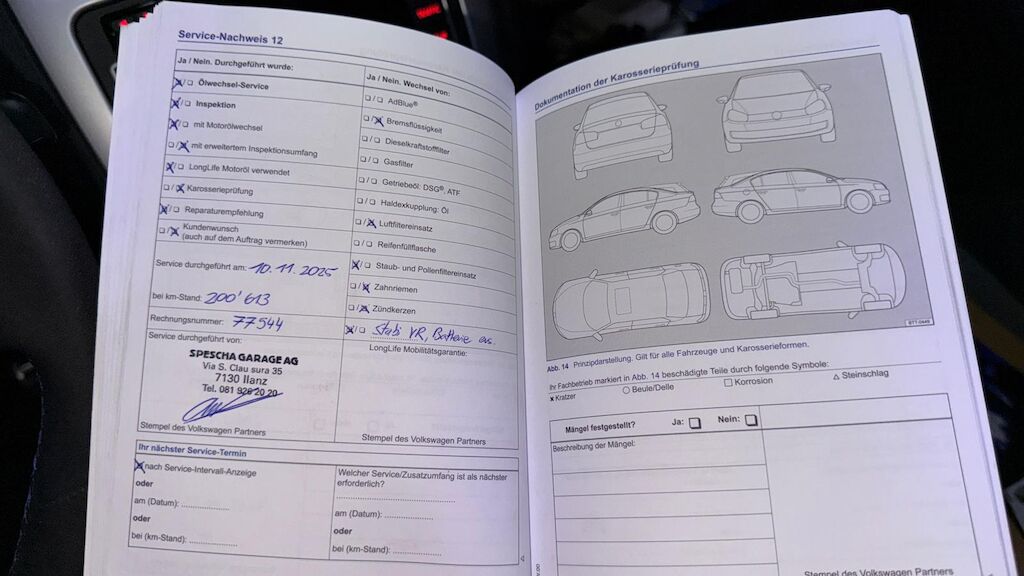 Service-Nachweis 12
Ja / Nein. Durchgeführt wurde:
Ölwechsel-Service
Inspektion
mit Motorölwechsel
mit erweitertem Inspektionsumfang
LongLife Motoröl verwendet
Karosserieprüfung
Reparaturempfehlung
Kundenwunsch
(auch auf dem Auftrag vermerken)
Service durchgeführt am: 10.11.2025
bei km-Stand: 200'613
Rechnungsnummer: 77544
Service durchgeführt von:
SPESCHA GARAGE AG
Via S. Clau sura 35
7130 Ilanz
Tel. 081 926 20 20
Stempel des Volkswagen Partners
Ja / Nein. Wechsel von:
AdBlue®
Bremsflüssigkeit
Dieselkraftstofffilter
Gasfilter
Getriebeöl: DSG®, ATF
Haldexkupplung: Öl
Luftfiltereinsatz
Reifenfüllflasche
Staub- und Pollenfiltereinsatz
Zahnriemen
Zündkerzen
Stabi VR, Batterie
LongLife Mobilitätsgarantie:
Stempel des Volkswagen Partners
Ihr nächster Service-Termin
nach Service-Intervall-Anzeige
oder
am (Datum):
oder
bei (km-Stand):
Welcher Service/Zusatzumfang ist als nächster
erforderlich?
am (Datum):
oder
bei (km-Stand):
Dokumentation der Karosserieprüfung
BTT-0449
Abb. 14 Prinzipdarstellung. Gilt für alle Fahrzeuge und Karosserieformen.
Ihr Fachbetrieb markiert in Abb. 14 beschädigte Teile durch folgende Symbole:
x Kratzer ○ Beule/Delle □ Korrosion △ Steinschlag
Mängel festgestellt? Ja: Nein:
Beschreibung der Mängel:
Stempel des Volkswagen Partners